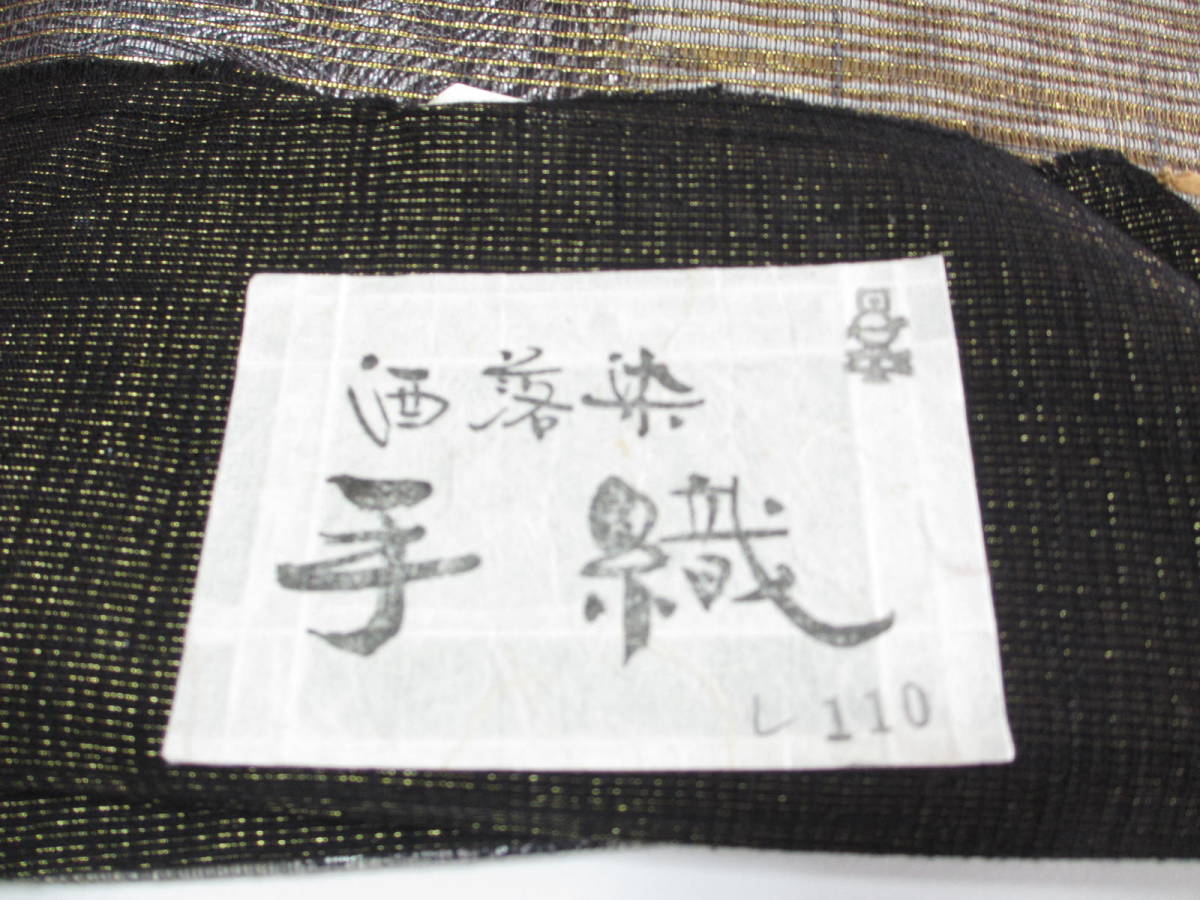 洒落染
手織
レ110